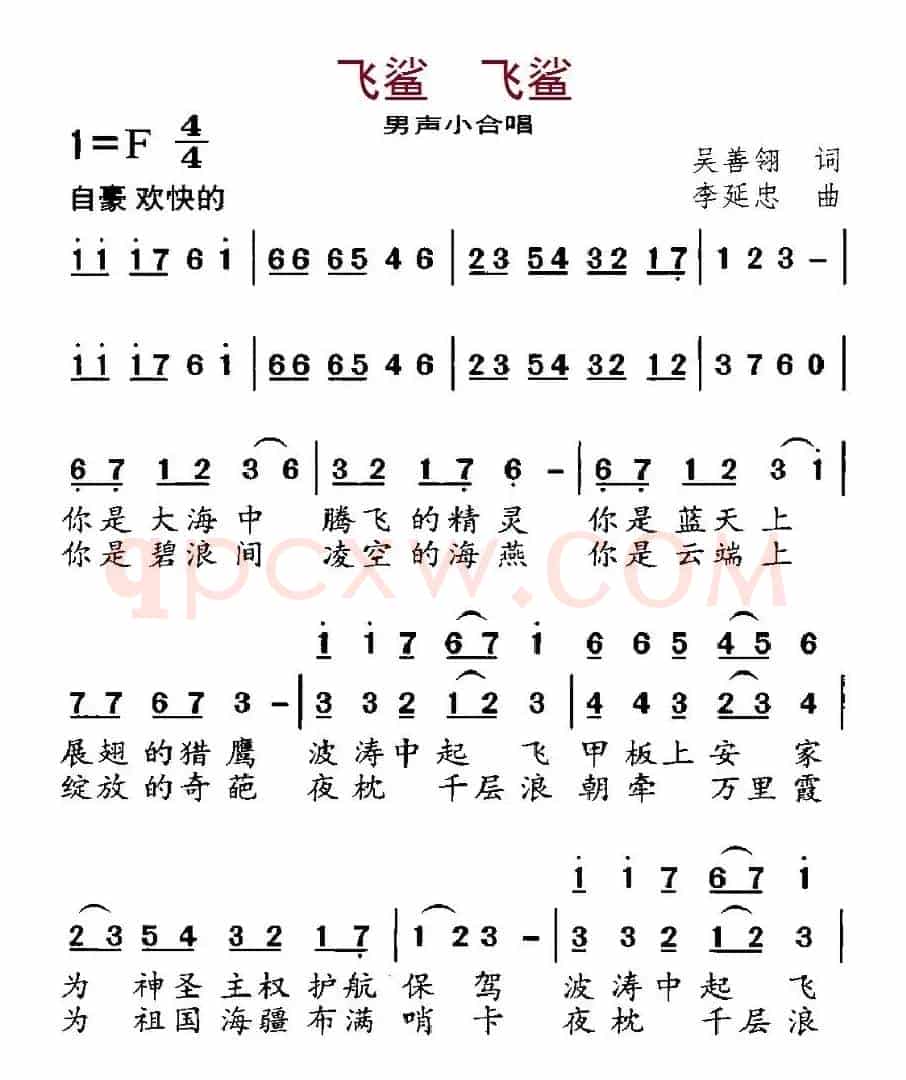 飞鲨 飞鲨
男声小合唱
1=F 4/4
吴善翎 词
自豪 欢快的
李延忠 曲
i i i 7 6 i | 6 6 6 5 4 6 | 2 3 5 4 3 2 1 7 | 1 2 3 – |
i i i 7 6 i | 6 6 6 5 4 6 | 2 3 5 4 3 2 1 2 | 3 7 6 0 |
6 7 1 2 3 6 | 3 2 1 7 6 – | 6 7 1 2 3 i |
你是大海中 腾飞的精灵 你是蓝天上
你是碧浪间 凌空的海燕 你是云端上
qpcxw.COM
i i 7 6 7 i 6 6 5 4 5 6
7 7 6 7 3 – | 3 3 2 1 2 3 | 4 4 3 2 3 4 |
展翅的猎鹰 波涛中起飞 甲板上安家
绽放的奇葩 夜枕千层浪 朝牵万里霞
i i 7 6 7 i
2 3 5 4 3 2 1 7 | 1 2 3 – | 3 3 2 1 2 3 |
为神圣主权护航保驾 波涛中起飞
为祖国海疆布满哨卡 夜枕千层浪